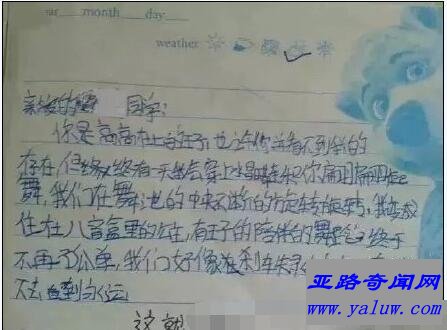 ear month day
weather
亲爱的 同学：
你是高高在上的王子，也许你并看不到我的
存在，但我终有一天会穿上水晶鞋和你翩翩起
舞，我们在舞池的中央不断的旋转旋转，我变成
住在八音盒里的公主，有王子的陪伴的舞 终于
不再孤单，我们好像
不去 到永远
这就
亚路奇闻网
www.yaluw.com